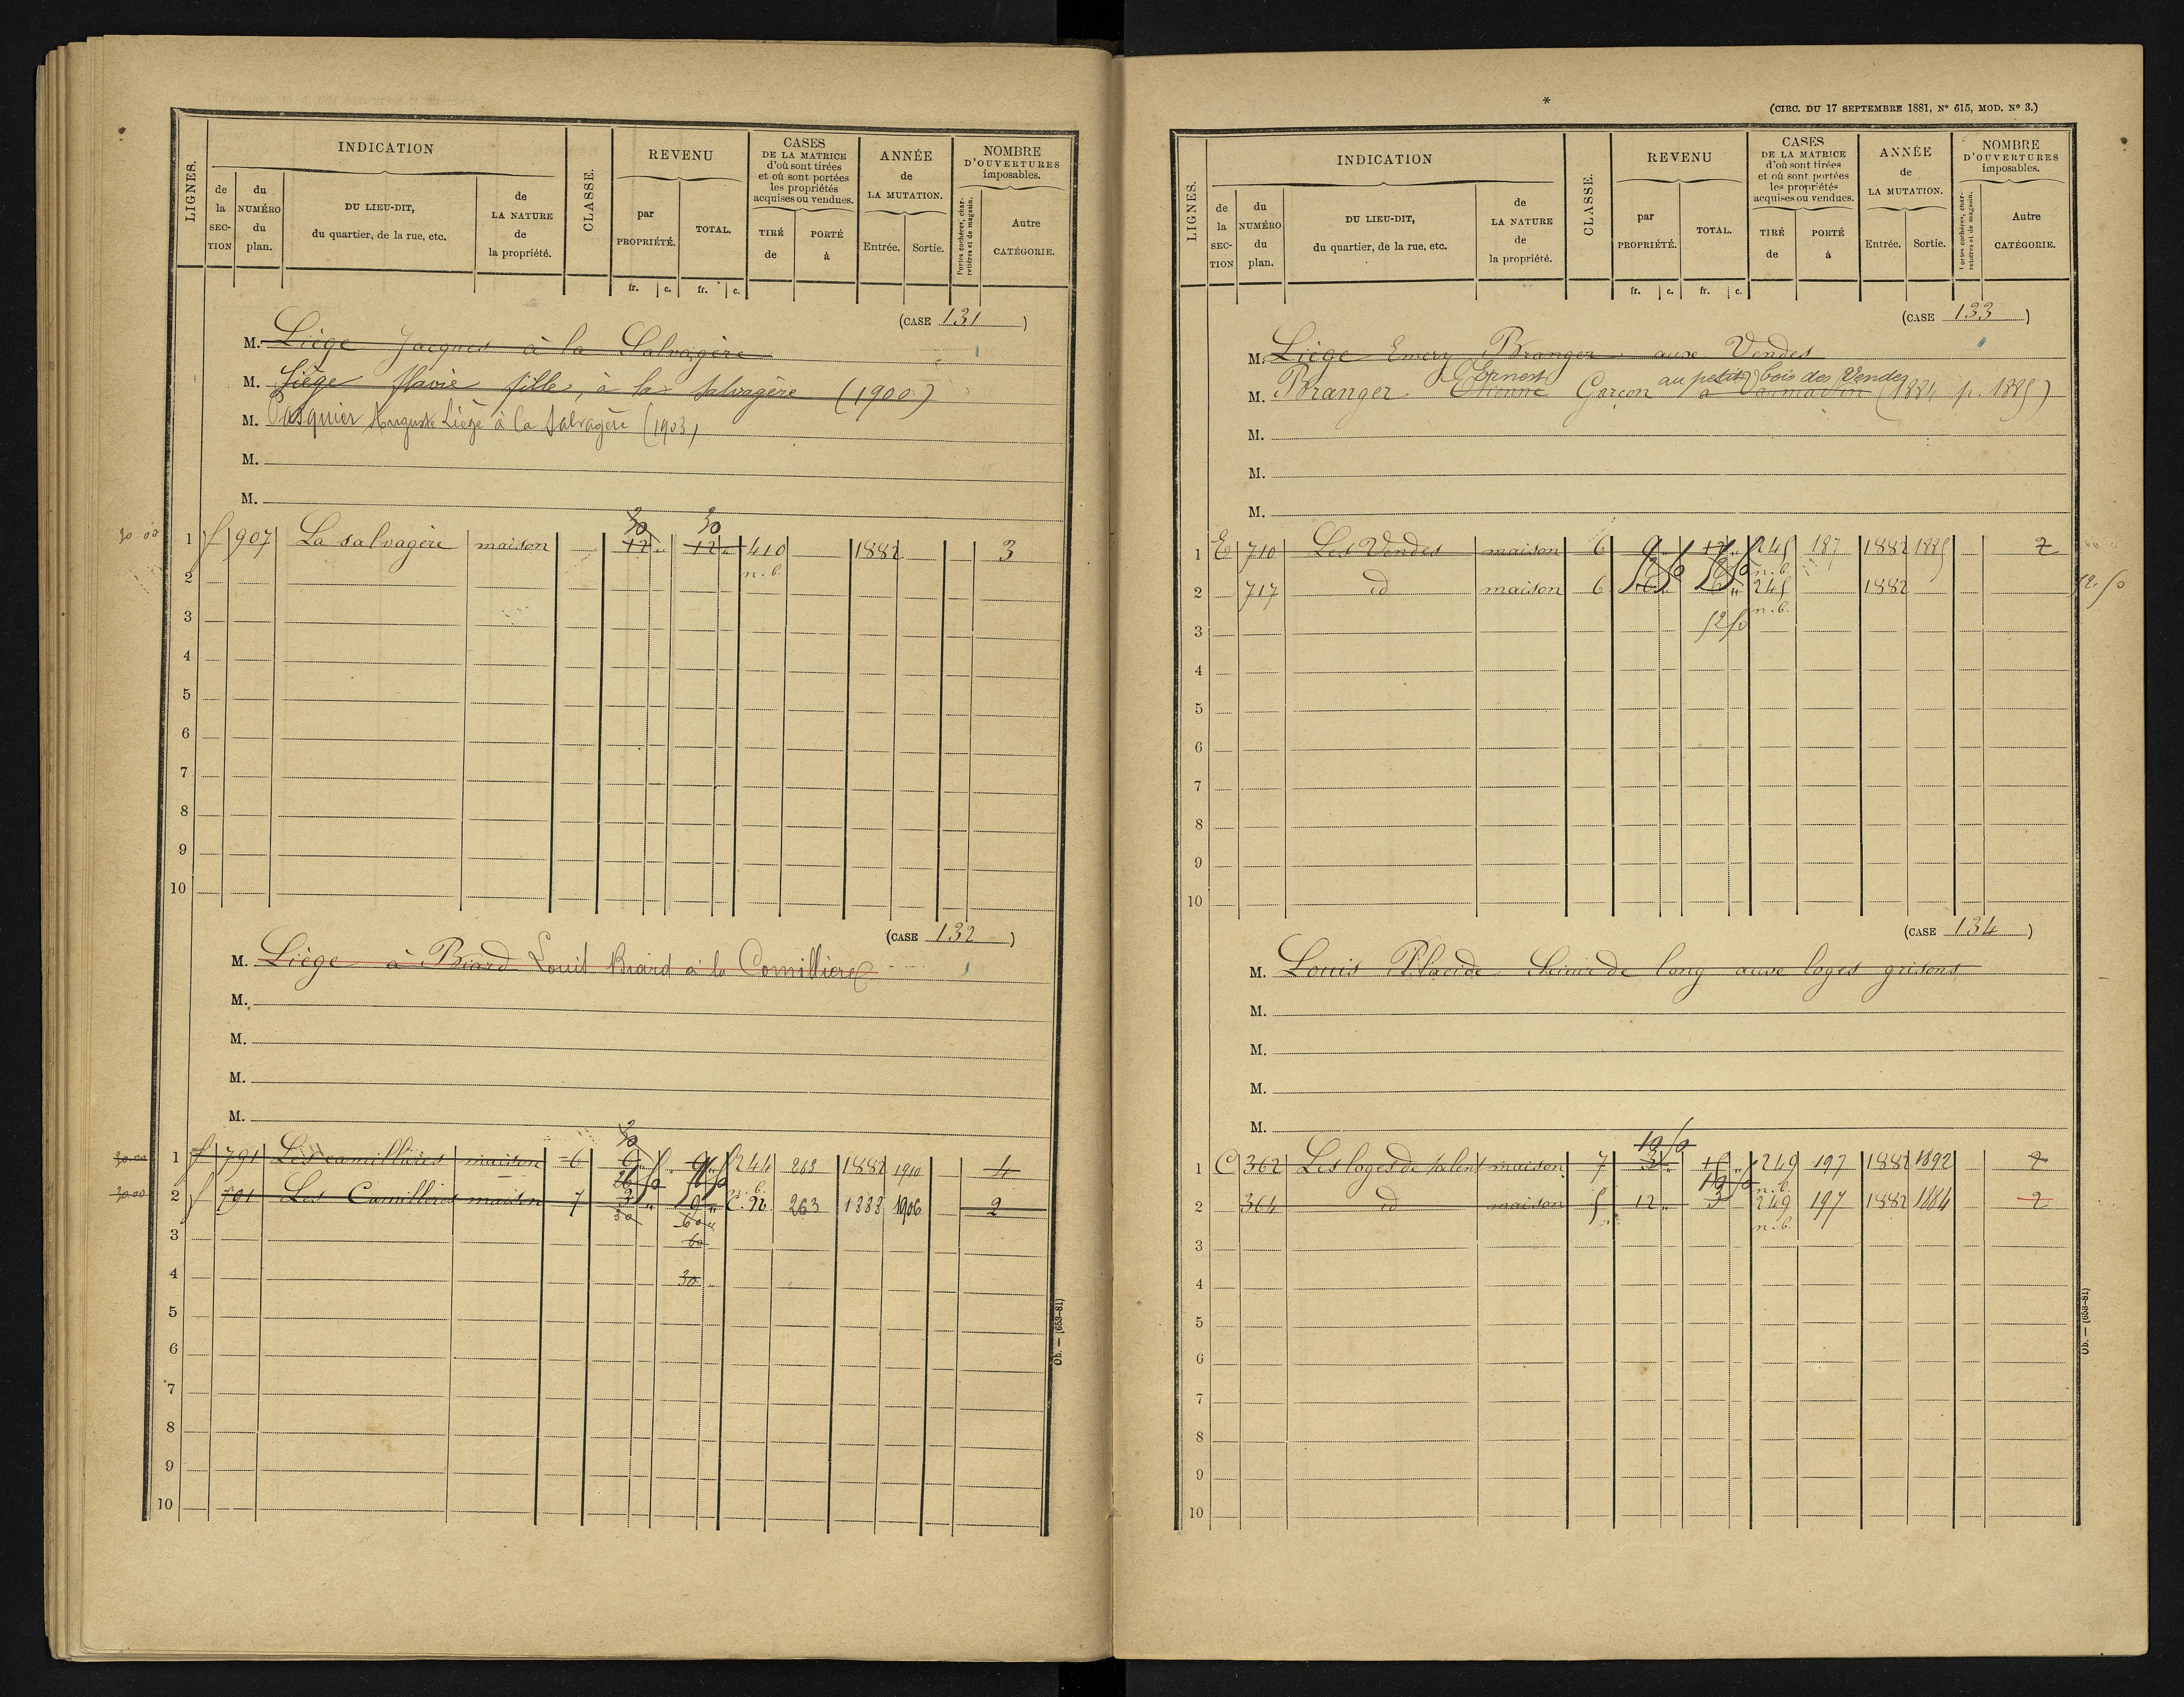 LIGNES.
INDICATION
de la SEC-TION
du NUMÉRO du plan.
DU LIEU-DIT, du quartier, de la rue, etc.
de LA NATURE de la propriété.
CLASSE.
REVENU
par PROPRIÉTÉ.
TOTAL.
fr. c. fr. c.
CASES DE LA MATRICE d'où sont tirées et où sont portées les propriétés acquises ou vendues.
TIRÉ de
PORTÉ à
ANNÉE de LA MUTATION.
Entrée. Sortie.
NOMBRE D'OUVERTURES imposables.
Portes cochères, charretières et de magasin.
Autre CATÉGORIE.
(CASE 131)
M. Liège Jacques à la Salvagère
M. Liège flavie fille, à la Salvagère (1900)
M. Pasquier Auguste Liège à la Salvagère (1903)
M.
M.
30 00 1 f 907 La Salvagère maison 30 12 " 30 12 " 410 n.b. 1882 3
2
3
4
5
6
7
8
9
10
(CASE 132)
M. Liège à Biard Louis Biard à la Comillieres
M.
M.
M.
M.
30.00 1 f 791 Les camillières maison 6 30 6 " 9 " 244 263 1882 1910 4
30.00 2 f 791 Les Camillières maison 7 3 " 30 9 " 60 C. 92 263 1888 1906 2
3 60
4 30
5
6
7
8
9
10
Ob. — (653-81)
*
(CIRC. DU 17 SEPTEMBRE 1881, N° 615, MOD. N° 3.)
LIGNES.
INDICATION
de la SEC-TION
du NUMÉRO du plan.
DU LIEU-DIT, du quartier, de la rue, etc.
de LA NATURE de la propriété.
CLASSE.
REVENU
par PROPRIÉTÉ.
TOTAL.
fr. c. fr. c.
CASES DE LA MATRICE d'où sont tirées et où sont portées les propriétés acquises ou vendues.
TIRÉ de
PORTÉ à
ANNÉE de LA MUTATION.
Entrée. Sortie.
NOMBRE D'OUVERTURES imposables.
Portes cochères, charretières et de magasin.
Autre CATÉGORIE.
(CASE 133)
M. Liège Emery Branger aux Vendes
Ernest au petit bois des Vendes
M. Branger Etienne Garçon à (1884 p. 1885)
M.
M.
M.
1 E 710 Les Vendes maison 6 9 " 245 n.b. 187 1882 1885 2
2 717 id maison 6 6 " 245 n.b. 1882 52.50
3 52 50
4
5
6
7
8
9
10
(CASE 134)
M. Louis Placide Scieur de long aux loges grisons
M.
M.
M.
M.
1 C 362 Les loges de maison 7 10 50 3 " 15 " 249 n.b. 197 1882 1892 2
2 364 id maison 5 12 " 3 249 n.b. 197 1882 1884 2
3
4
5
6
7
8
9
10
Ob. — (653-81)